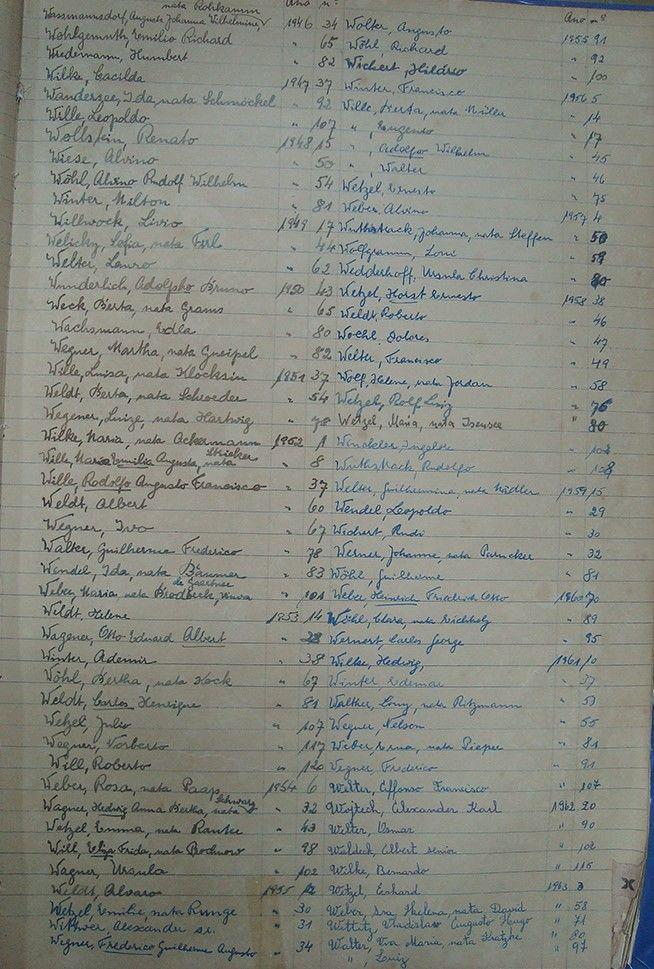 nata Rohkamm Ano nº
Wassmannsdorf, Auguste Johanna Wilhelmine, V 1946 34
Wohlgemuth, Emilio Richard " 65
Wiedemann, Humbert " 82
Wilke, Cacilda 1947 37
Wandersee, Ida, nata Schmöckel " 92
Wille, Leopoldo " 107
Wollstein, Renato 1948 15
Wiese, Alvino " 50
Wöhl, Alvino Rudolf Wilhelm " 54
Winter, Milton " 81
Willwock, Livio 1949 17
Welichy, nata " 44
Welter, Lauro " 62
Wunderlich, Adolpho Bruno 1950 43
Weck, Berta, nata Grams " 65
Wachsmann, Edla " 80
Wegner, Martha, nata Gneipel " 82
Wille, Luisa, nata Klocksin 1951 37
Weldt, Berta, nata Schroeder " 54
Wegener, Luize, nata Hartwig " 78
Wilke, Maria, nata Ackermann 1952 1
Wille, Maria Emilia Augusta, nata Stricker " 8
Wille, Rodolfo Augusto Francisco " 37
Weldt, Albert " 60
Wegner, Ivo " 67
Walter, Guilherme Frederico " 78
Wendel, Ida, nata Bäumer " 83
Weber, Maria, nata Brodbeck, viuva de Gaertner " 101
Weldt, Helene 1953 14
Wagener, Otto Eduard Albert "
Winter, Ademir " 38
Wöhl, Bertha, nata Hock " 67
Weldt, Carlos Henrique " 81
Wetzel, Julio " 107
Wegner, Norberto " 117
Will, Roberto " 120
Weber, Rosa, nata Paap 1954 6
Wagner, Hedwig Anna Bertha, nata Schwarz " 32
Wetzel, Emma, nata Ranke " 43
Will, Elza Frida, nata Bochnow " 98
Wagner, Ursula " 102
Weldt, Alvaro 1955 12
Wetzel, Emilie, nata Runge " 30
Wittwer, Alexander sr. " 31
Wegner, Frederico Guilherme Augusto " 34
Ano nº
Wolter, Augusto 1955 91
Wöhl, Richard " 92
Wichert, Hildro " 100
Winter, Francisco 1956 5
Wille, Berta, nata Müller " 14
" , Eugenio " 17
" , Adolfo Wilhelm " 45
" , Walter " 46
Wetzel, Ernesto " 75
Weber, Alvino 1957 4
Wuthstrack, Johanna, nata Steffen " 50
Wolfgramm, Loni " 59
Wedderhoff, Ursula Christina " 80
Wetzel, Horst Ernesto 1958 38
Weldt, Roberto " 46
Woehl, Dolores " 47
Welter, Francisco " 49
Wolf, Helene, nata Jordan " 58
Wetzel, Rolf Luiz " 76
Wetzel, Maria, nata Isensee " 80
Winckler, Ingelore " 102
Wuthstrack, Rudolfo " 128
Welter, Guilhermina, nata Mädler 1959 15
Wendel, Leopoldo " 29
Wichert, Rudi " 30
Werner, Johanne, nata Parucker " 32
Wöhl, Guilherme " 81
Weber, Heinrich Friedrich Otto 1960 70
Wöhl, Clara, nata Eichholz " 89
Wernert, Carlos George " 95
Wilke, Hedwig, 1961 10
Winter Edemar " 37
Walther, Lony, nata Ritzmann " 53
Wegner, Nelson " 55
Weber, Erna, nata Pieper " 81
Wegner, Frederico " 91
Walter, Affonso Francisco " 107
Wojtech, Alexander Karl 1962 20
Walter, Osmar " 90
Waldech, Albert senior " 102
Wilke, Bernardo " 115
Witzel, Erhard 1963 3
Weber, Eva Helena, nata David " 53
Wladislaw Augusto Hugo " 71
Walter, Eva Maria, nata " 80
" , Luiz " 97
X